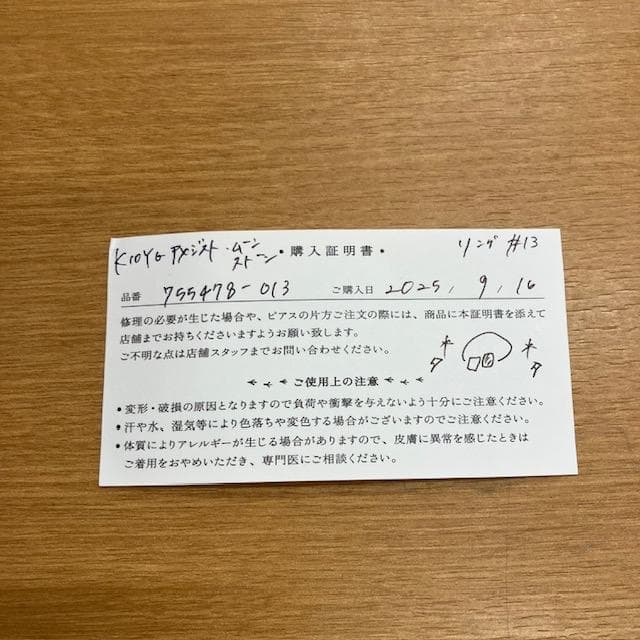 K10YG アメジスト・ムーンストーン ・購入証明書・ リング #13
品番 755478-013 ご購入日 2025, 9, 16
修理の必要が生じた場合や、ピアスの片方ご注文の際には、商品に本証明書を添えて
店舗までお持ちくださいますようお願い致します。
ご不明な点は店舗スタッフまでお問い合わせください。
ご使用上の注意
・変形・破損の原因となりますので負荷や衝撃を与えないよう十分にご注意ください。
・汗や水、湿気等により色落ちや変色する場合がございますのでご注意ください。
・体質によりアレルギーが生じる場合がありますので、皮膚に異常を感じたときは
ご着用をおやめいただき、専門医にご相談ください。